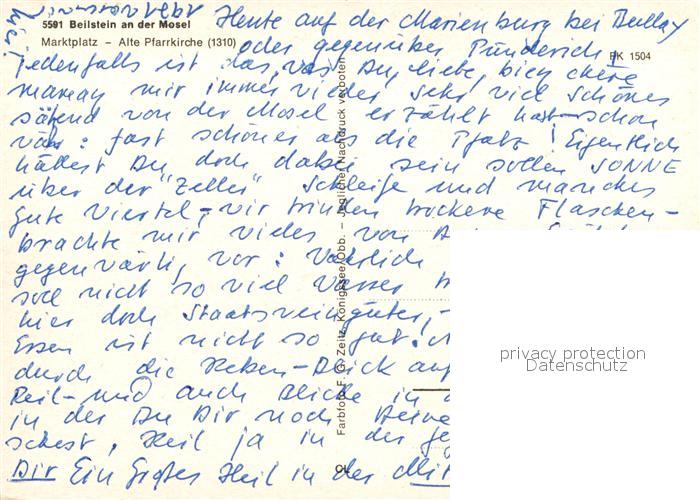 5591 Beilstein an der Mosel
Marktplatz – Alte Pfarrkirche (1310)
RK 1504
Heute auf der Marienburg bei Bullay
oder gegenüber Pünderich,
jedenfalls ist das, was Du, liebe, bien chère
maman mir immer wieder sehr viel Schönes
von der Mosel erzählt hast schon
fast schöner als die Pfalz! Eigentlich
hättest Du doch dabei sein sollen SONNE
über der "Zeller" Schleife und manches
gute Viertel, wir trinken trockene Flaschen-
brachte mir vieles von
gegenwärtig vor: Wahrlich
soll nicht so viel Wasser
hier doch Staatsweingüter,-
Essen ist nicht so gut!
durch die Reben-Blick auf
Reil- und auch Blicke in
in der Du Dir noch
Heil ja in der
Dir Ein Großes Heil in der Mit
Farbfoto F. G. Zeitz, Königssee/Obb. – Jeglicher Nachdruck verboten
privacy protection
Datenschutz